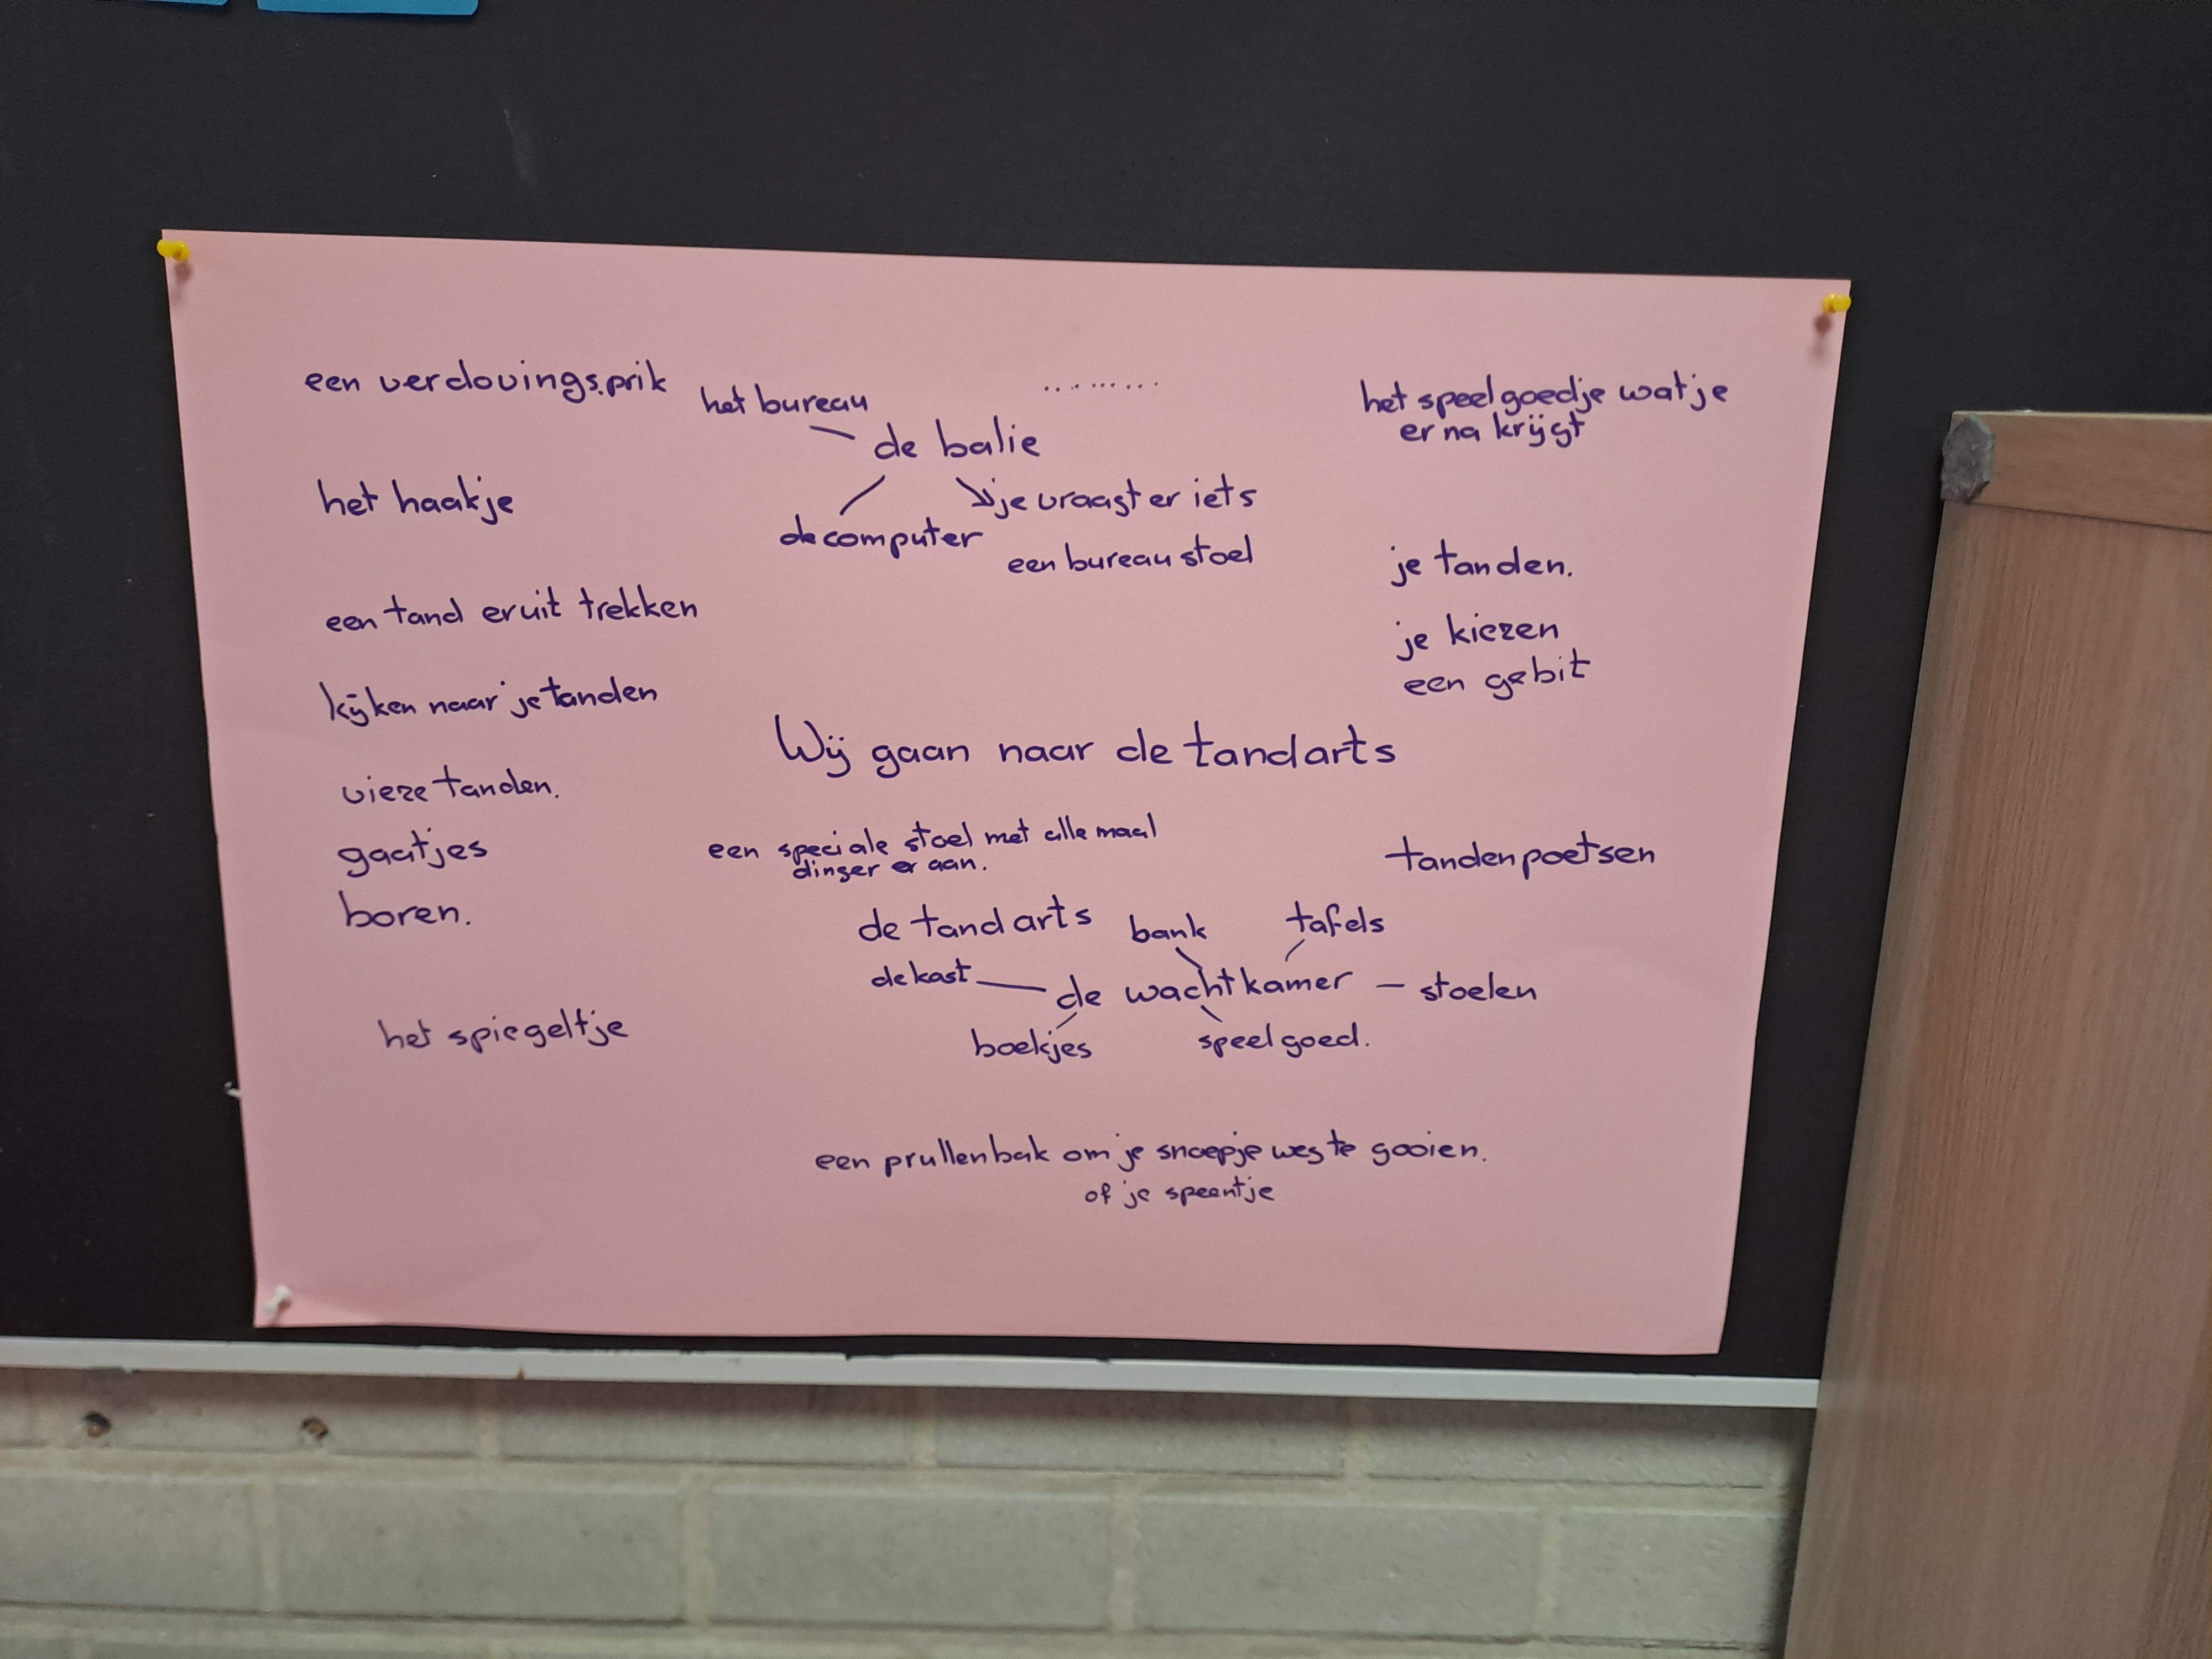 een verdovingsprik
het bureau
.........
het speelgoedje wat je
er na krijgt
de balie
het haakje
je vraagt er iets
de computer
een bureau stoel
je tanden.
een tand eruit trekken
je kiezen
een gebit
kijken naar je tanden
Wij gaan naar de tandarts
vieze tanden.
gaatjes
een speciale stoel met alle maal
dinger er aan.
tandenpoetsen
boren.
de tandarts
bank
tafels
de kast
de wachtkamer
stoelen
het spiegeltje
boekjes
speelgoed.
een prullenbak om je snoepje weg te gooien.
of je speentje